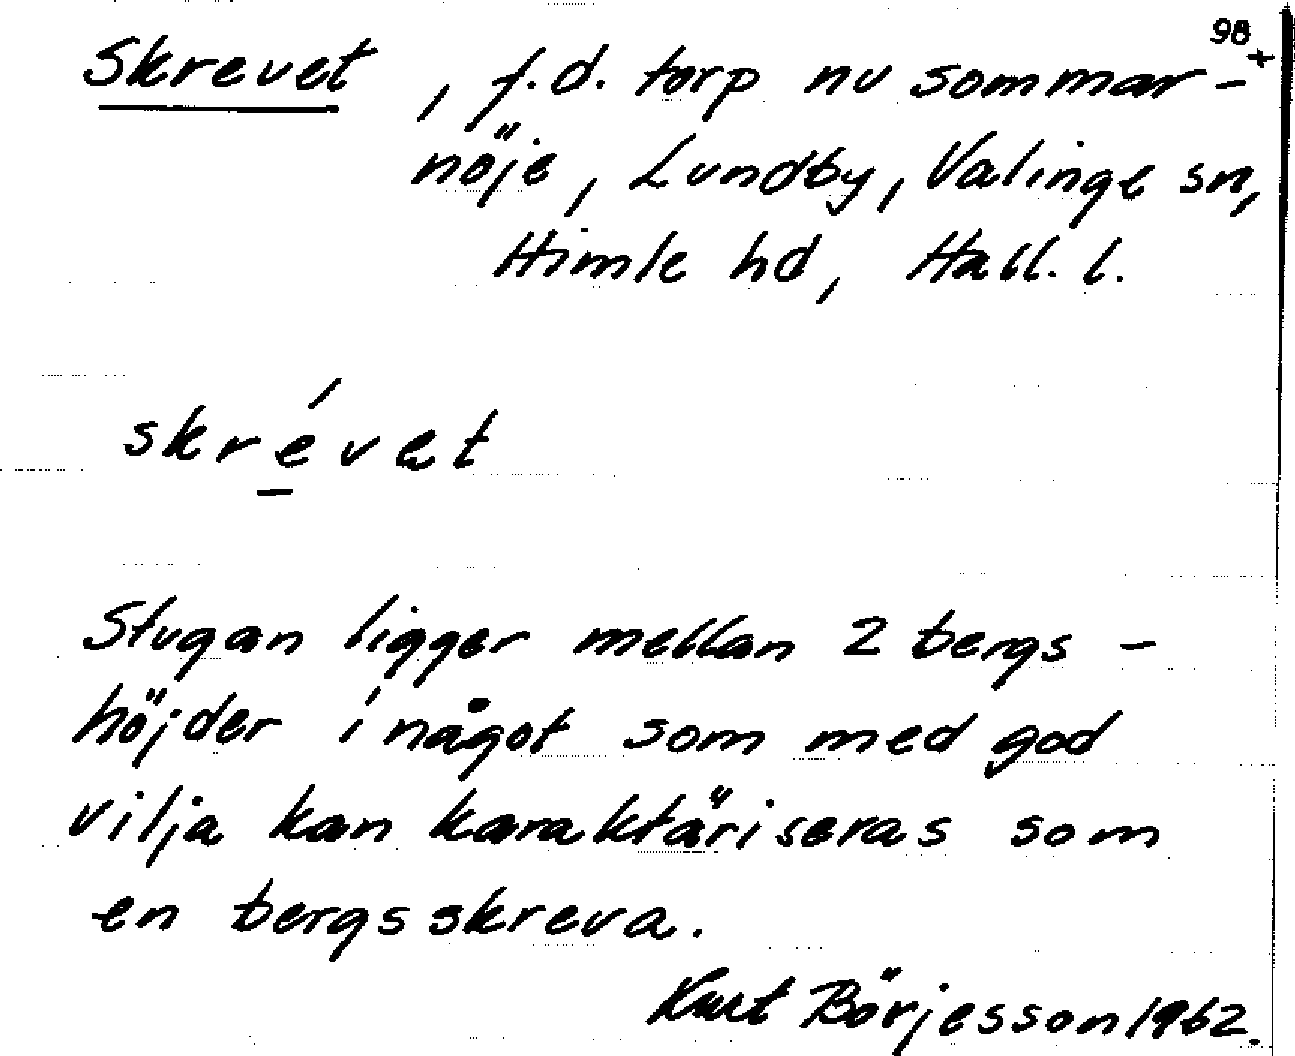 98
Skrevet, f.d. torp nu sommar-
nöje, Lundby, Valinge sn,
Himle hd, Hall. l.
skrévet
Stugan ligger mellan 2 bergs-
höjder i något som med god
vilja kan karaktäriseras som
en bergsskreva.
Kurt Börjesson 1962.